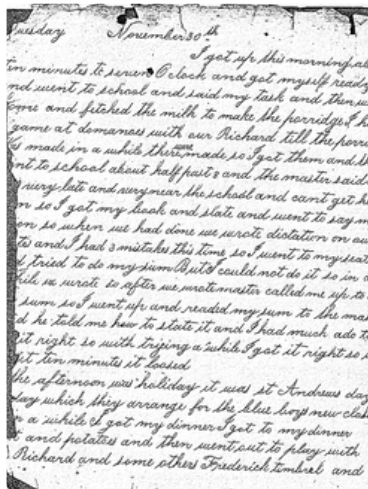 Tuesday November 30th
I got up this morning at
ten minutes to seven O clock and got myself ready
and went to school and said my task and then w
home and fetched the milk to make the porridge I h
game at domanoes with our Richard till the porri
was made in a while there were made so I got them and th
went to school about half past 8 and the master said
very late and very near the school and cant get he
so I got my book and slate and went to say m
so when we had done we wrote dictation on ou
slates and I had 3 mistakes this time so I went to my seat
and tried to do my sum But I could not do it so in a
while we wrote so after we wrote master called me up to
sum so I went up and readed my sum to the mas
and he told me how to state it and I had much ado to
it right so with trying a while I got it right so
ten minutes it loosed
the afternoon was holiday it was st Andrews day
day which they arrange for the blue boys new cloth
in a while I got my dinner I got to my dinner
and potatoes and then went out to play with
Richard and some others Frederick timbrel and